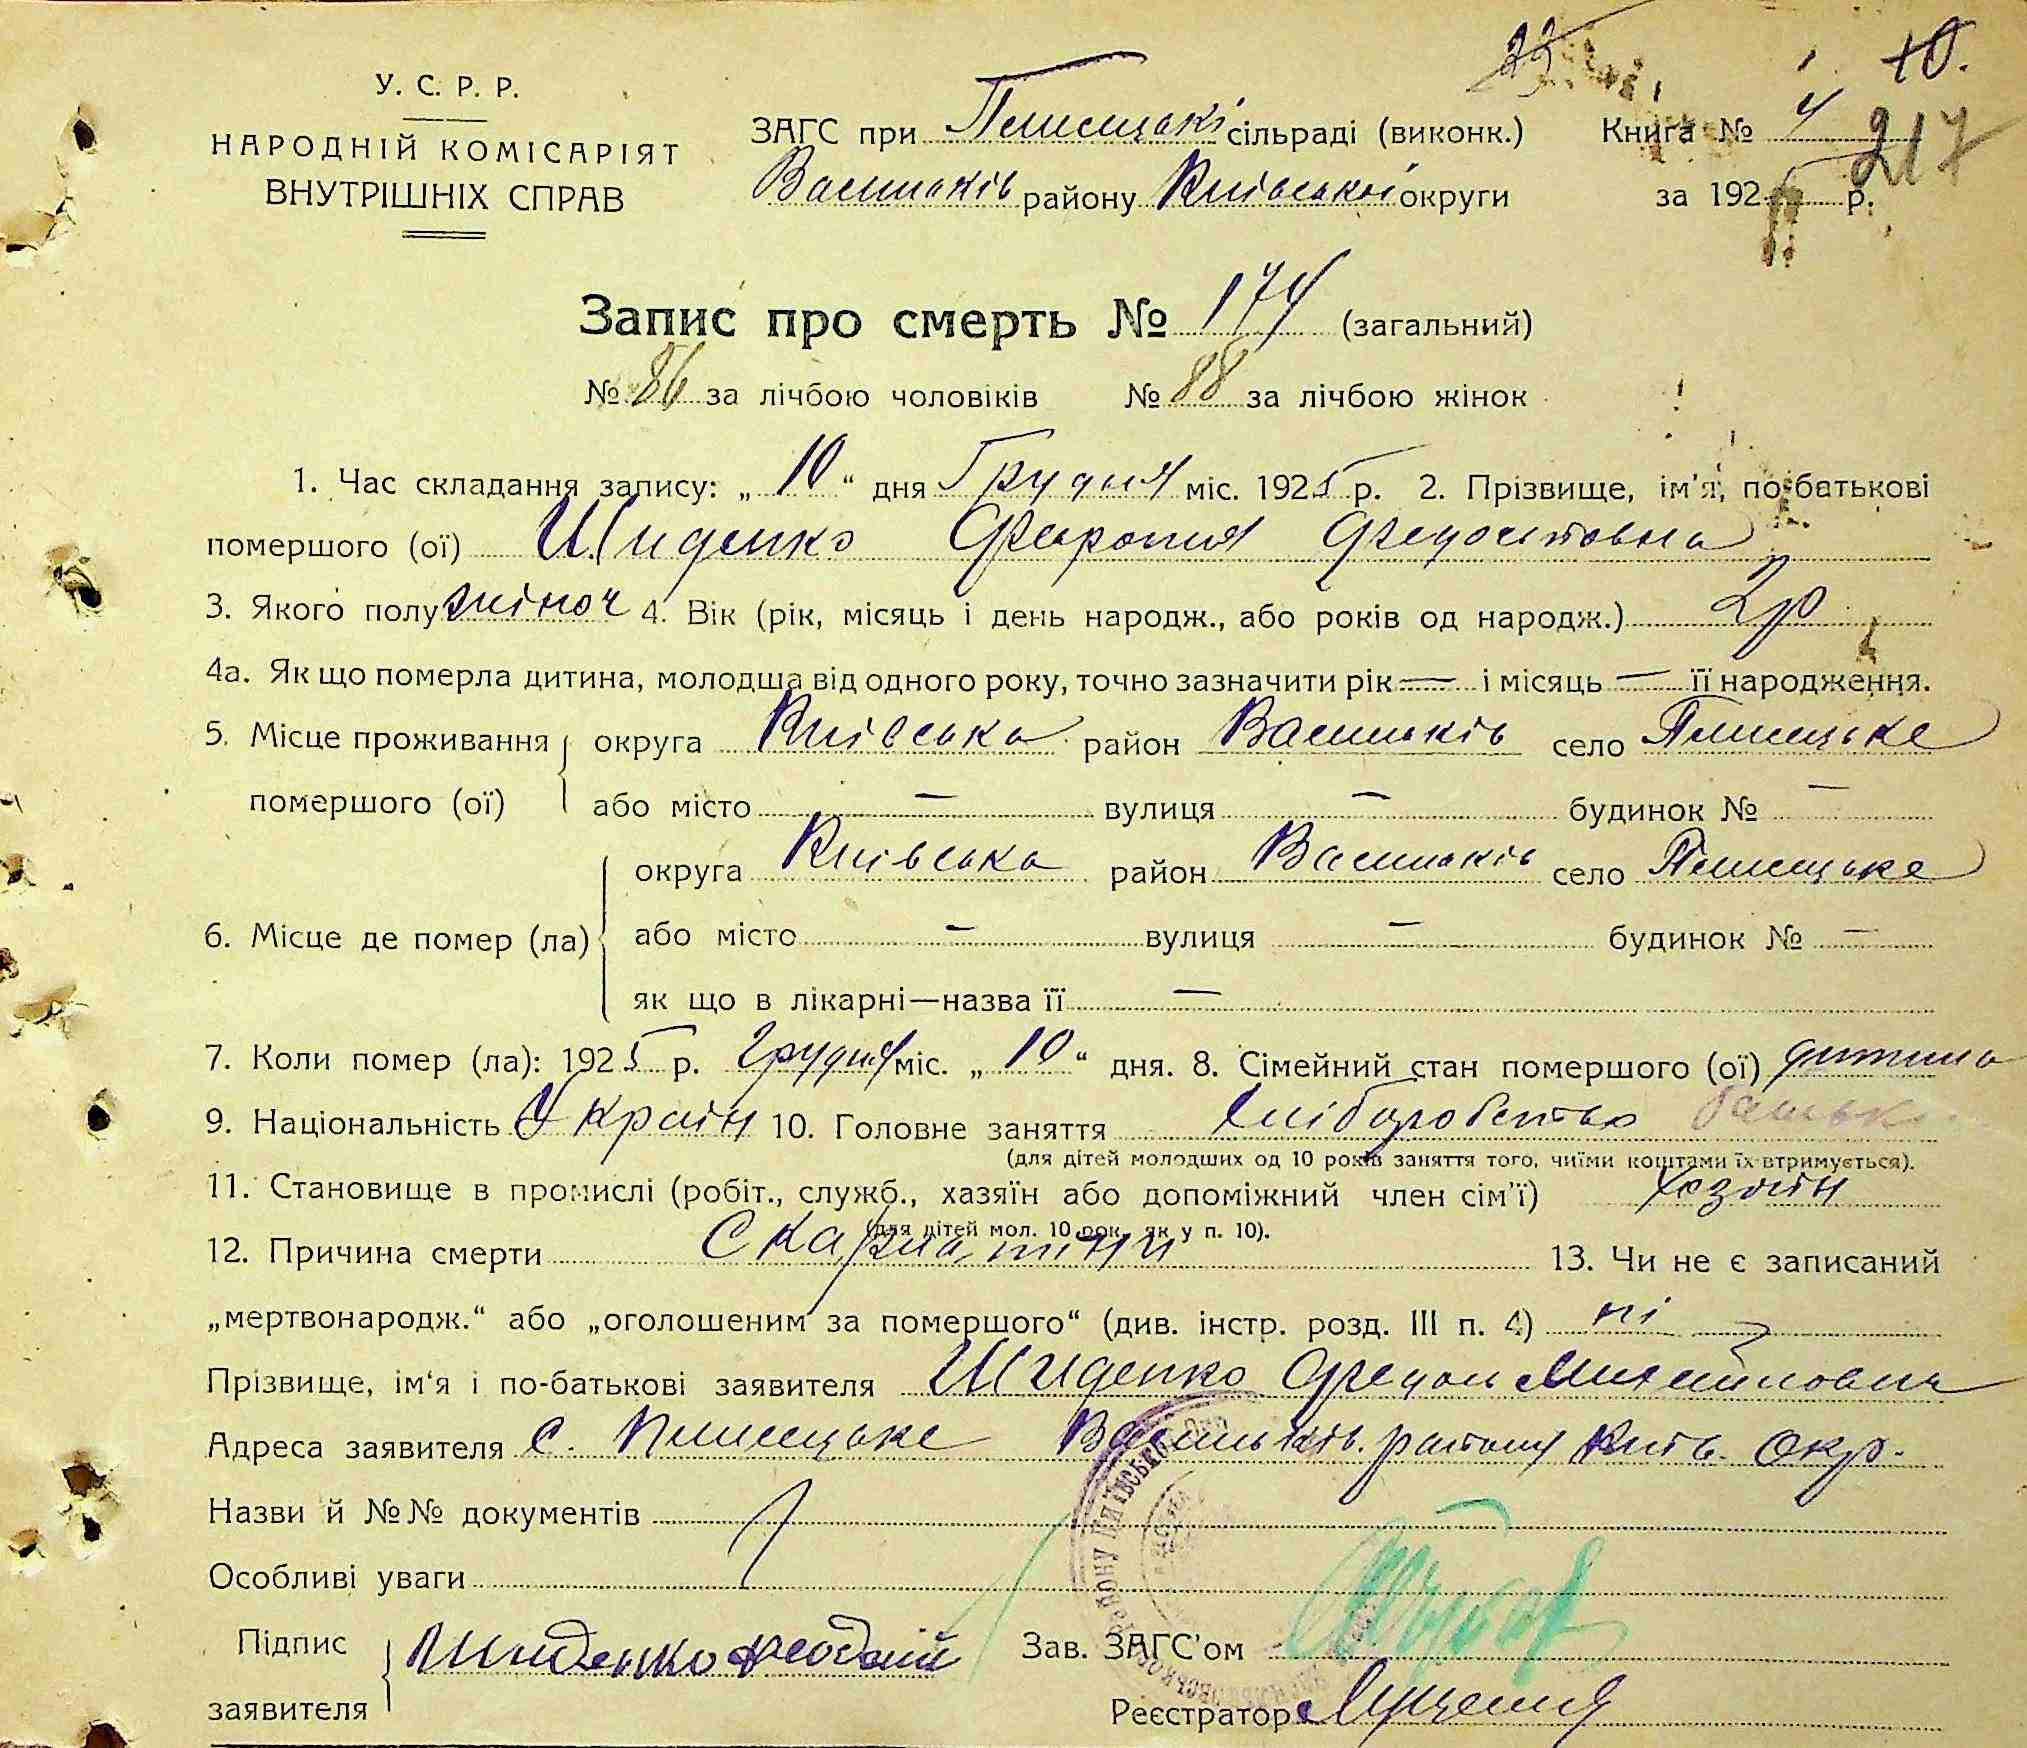 23 10.
У. С. Р. Р.
НАРОДНІЙ КОМІСАРІЯТ
ВНУТРІШНІХ СПРАВ
ЗАГС при Плисецькі сільраді (виконк.) Книга № 4 217
Васильків району Київської округи за 1925 р.
Запис про смерть № 174 (загальний)
№ 86 за лічбою чоловіків № 88 за лічбою жінок
1. Час складання запису: „10“ дня Грудня міс. 1925 р. 2. Прізвище, ім'я, по-батькові
помершого (ої) Шиденко Федосіовна
3. Якого полу жіноч 4. Вік (рік, місяць і день народж., або років од народж.) 2 р
4а. Як що померла дитина, молодша від одного року, точно зазначити рік — і місяць — її народження.
5. Місце проживання округа Київська район Васильків село Плисецьке
помершого (ої) або місто — вулиця — будинок № —
округа Київська район Васильків село Плисецьке
6. Місце де помер (ла) або місто — вулиця — будинок № —
як що в лікарні—назва її —
7. Коли помер (ла): 1925 р. Грудня міс. „10“ дня. 8. Сімейний стан помершого (ої) дитина
9. Національність Украін 10. Головне заняття хліборобство батько
(для дітей молодших од 10 років заняття того, чиїми коштами їх втримується).
11. Становище в промислі (робіт., служб., хазяїн або допоміжний член сім'ї) хозяїн
(для дітей мол. 10 рок. як у п. 10).
12. Причина смерти Скарлатіни 13. Чи не є записаний
„мертвонародж.“ або „оголошеним за помершого“ (див. інстр. розд. III п. 4) ні
Прізвище, ім'я і по-батькові заявителя Шиденко Михайловна
Адреса заявителя с. Плисецьке Васильків. району Київ. Окр.
Назви й №№ документів
Особливі уваги
Підпис заявителя Шиденко
Зав. ЗАГС'ом
Реєстратор